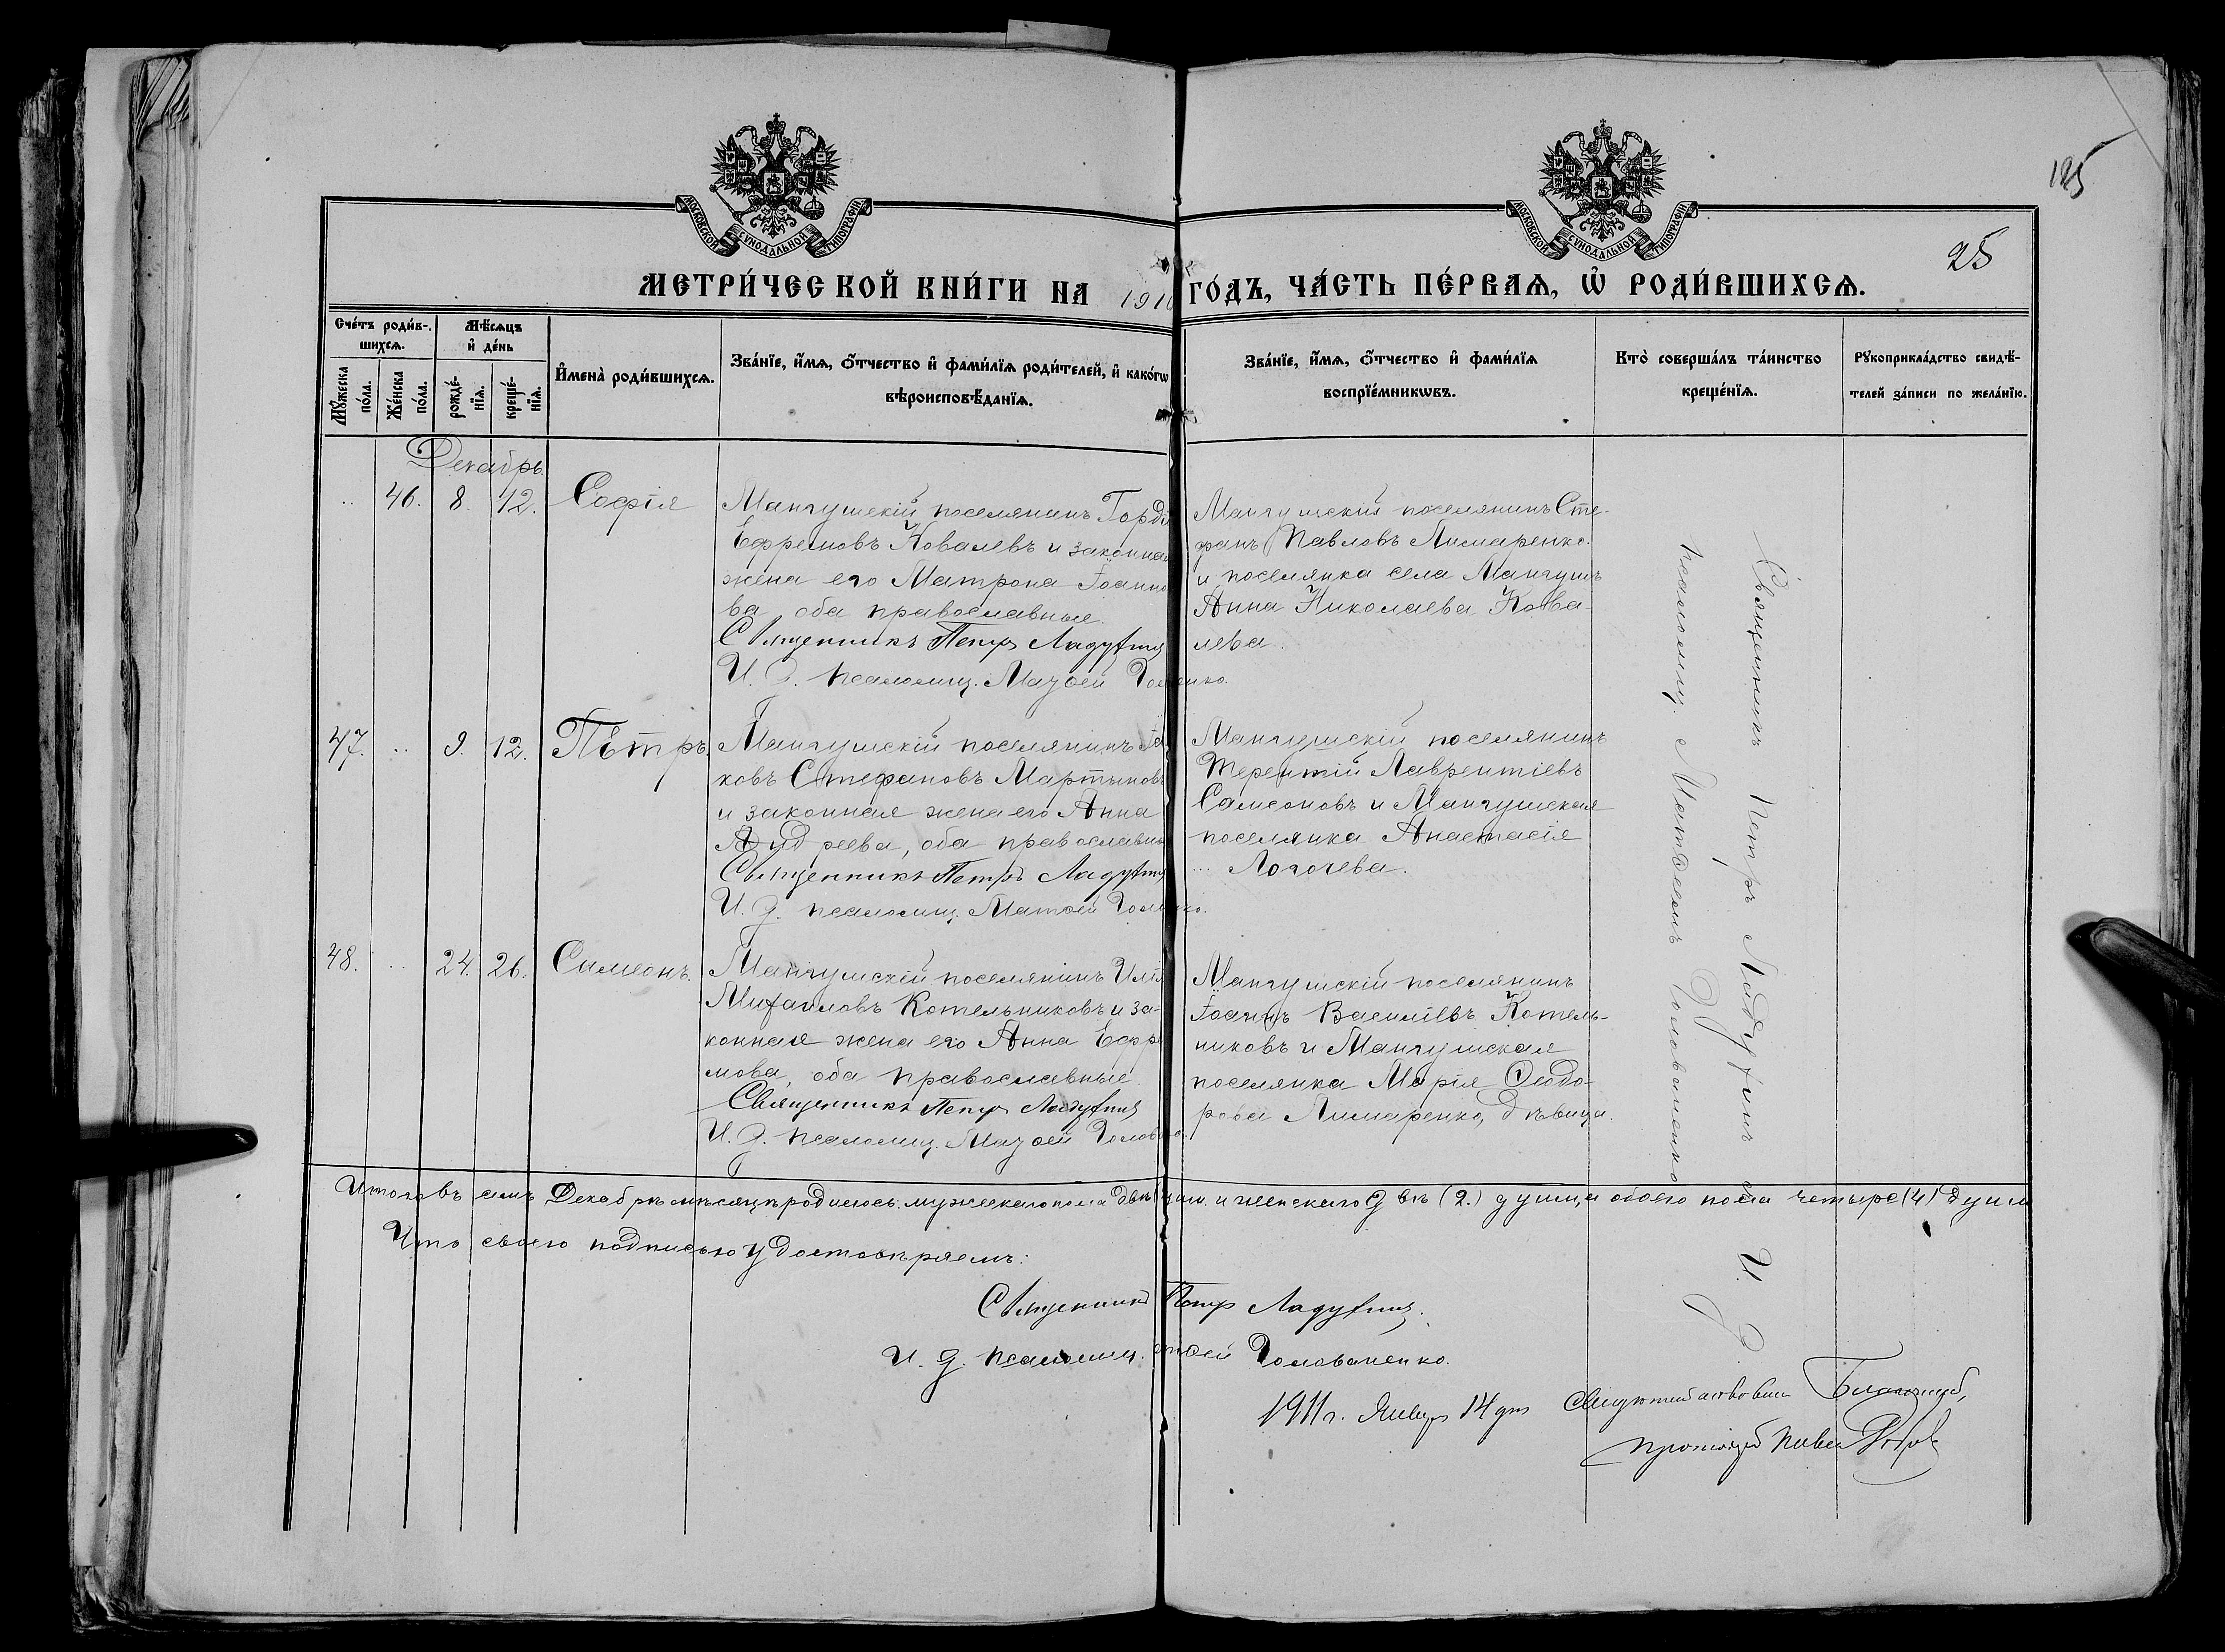 125
25
МОСКОВСКОЙ СѴНОДАЛЬНОЙ ТИПОГРАФІИ
МОСКОВСКОЙ СѴНОДАЛЬНОЙ ТИПОГРАФІИ
МЕТРИ́ЧЕСКОЙ КНИ́ГИ НА 1910 ГО́ДЪ, ЧА́СТЬ ПЕ́РВАѦ, Ѡ҆ РОДИ́ВШИХСѦ.
Сче́тъ роди́в-
шихсѧ.
Мꙋ́жеска по́ла.
Же́нска по́ла.
Мѣ́сѧцъ
и҆ де́нь
рожде́-
нїѧ.
креще́-
нїѧ.
И҆мена̀ роди́вшихсѧ.
Зва́нїе, и҆́мѧ, ѻ҆́тчество и҆ фами́лїѧ роди́телей, и҆ како́гѡ
вѣроисповѣ́данїѧ.
Зва́нїе, и҆́мѧ, ѻ҆́тчество и҆ фами́лїѧ
воспрїе́мникѡвъ.
Кто̀ соверша́лъ та́инство
креще́нїѧ.
Рꙋкоприкла́дство свидѣ́-
телей за́писи по жела́нїю.
Декабрь.
.. 46. 8. 12. Софія
Мангушскій поселянинъ Горді
Ефремовъ Ковалевъ и законная
жена его Матрона Іоанно
ва, оба православные.
Священникъ Петръ Ладухинъ
И. д. псаломщ. Матѳей Головненко.
Мангушскій поселянинъ Сте-
фанъ Павловъ Лимаренко.
и поселянка села Мангушъ
Анна Николаева Кова-
лева.
47. .. 9. 12. Пѣтръ.
Мангушскій поселянинъ Іа
ковъ Стефановъ Мартыновъ
и законная жена его Анна
Андреева, оба православны
Священникъ Петръ Ладухинъ
И. д. псаломщ. Матѳей
Мангушскій поселянинъ
Терентій Лаврентіевъ
Самсоновъ и Мангушская
поселянка Анастасія
... Логочева.
48. .. 24. 26. Симеонъ.
Мангушскій поселянинъ Илія
Михаиловъ Котельниковъ и за-
конная жена его Анна Ефре
мова, оба православные.
Священникъ Петръ Ладухинъ
И. д. псаломщ. Матѳей
Мангушскій поселянинъ
Іоаннъ Василіевъ Котель-
никовъ и Мангушская
поселянка Марія Ѳеодо-
рова Лимаренко, дѣвица.
Священникъ Петръ Ладухинъ съ И. д.
псаломщ. Матѳеемъ Голованенко
Итого въ семъ Декабрѣ мѣсяцѣ родилось. мужескаго пола двѣ души. и женскаго двѣ (2.) души, а обоего пола четыре (4) души
Что своею подписью удостовѣряемъ:
Священникъ Петръ Ладухинъ.
И. д. псаломщ. Матѳей Голованенко.
1911 г. Январ 14 дня Благочин,
протоіерей Павелъ